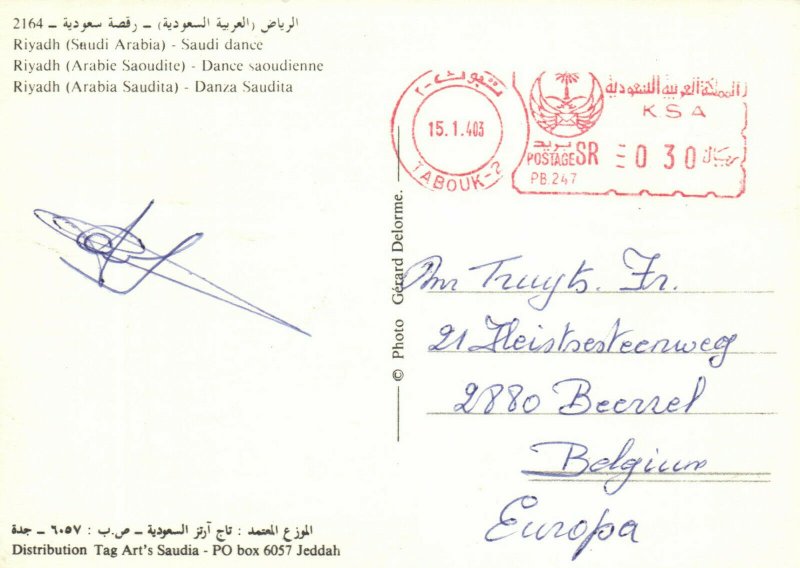 2164 ـ الرياض (العربية السعودية) ـ رقصة سعودية
Riyadh (Saudi Arabia) - Saudi dance
Riyadh (Arabie Saoudite) - Dance saoudienne
Riyadh (Arabia Saudita) - Danza Saudita
تبوك-٢
15.1.403
TABOUK-2
المملكة العربية السعودية
K S A
بريد
POSTAGE SR 030 ريال
PB.247
© Photo Gérard Delorme.
Truyts. Fr.
21 Heistsesteenweg
2880 Beerzel
Belgium
Europa
الموزع المعتمد : تاج آرتز السعودية ـ ص.ب : ٦٠٥٧ ـ جدة
Distribution Tag Art's Saudia - PO box 6057 Jeddah